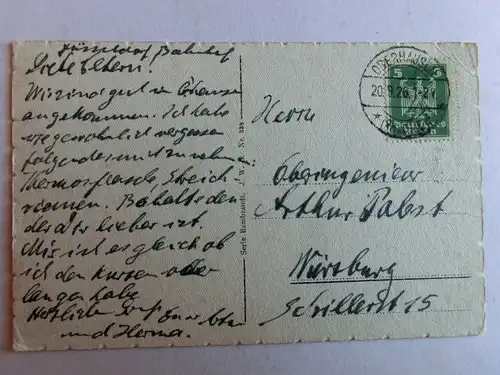 Düsseldorf Bahnhof
Liebe Eltern.
Wir sind gut in
angekommen. Ich habe
wie gewöhnlich vergessen
folgendes mitzunehmen:
Thermosflasche, Streich-
riemen. Behalts den
der dir lieber ist.
Mir ist es gleich ob
ich den kurzen oder
langen habe
Herzliche
und Herma.
Serie Rembrandt. J. W. Nr.
OBERHAUSEN
20.9.26
5 5
Deutsches
Reich
Herrn
Oberingenieur
Arthur Pabst
Würzburg
Schillerst 15